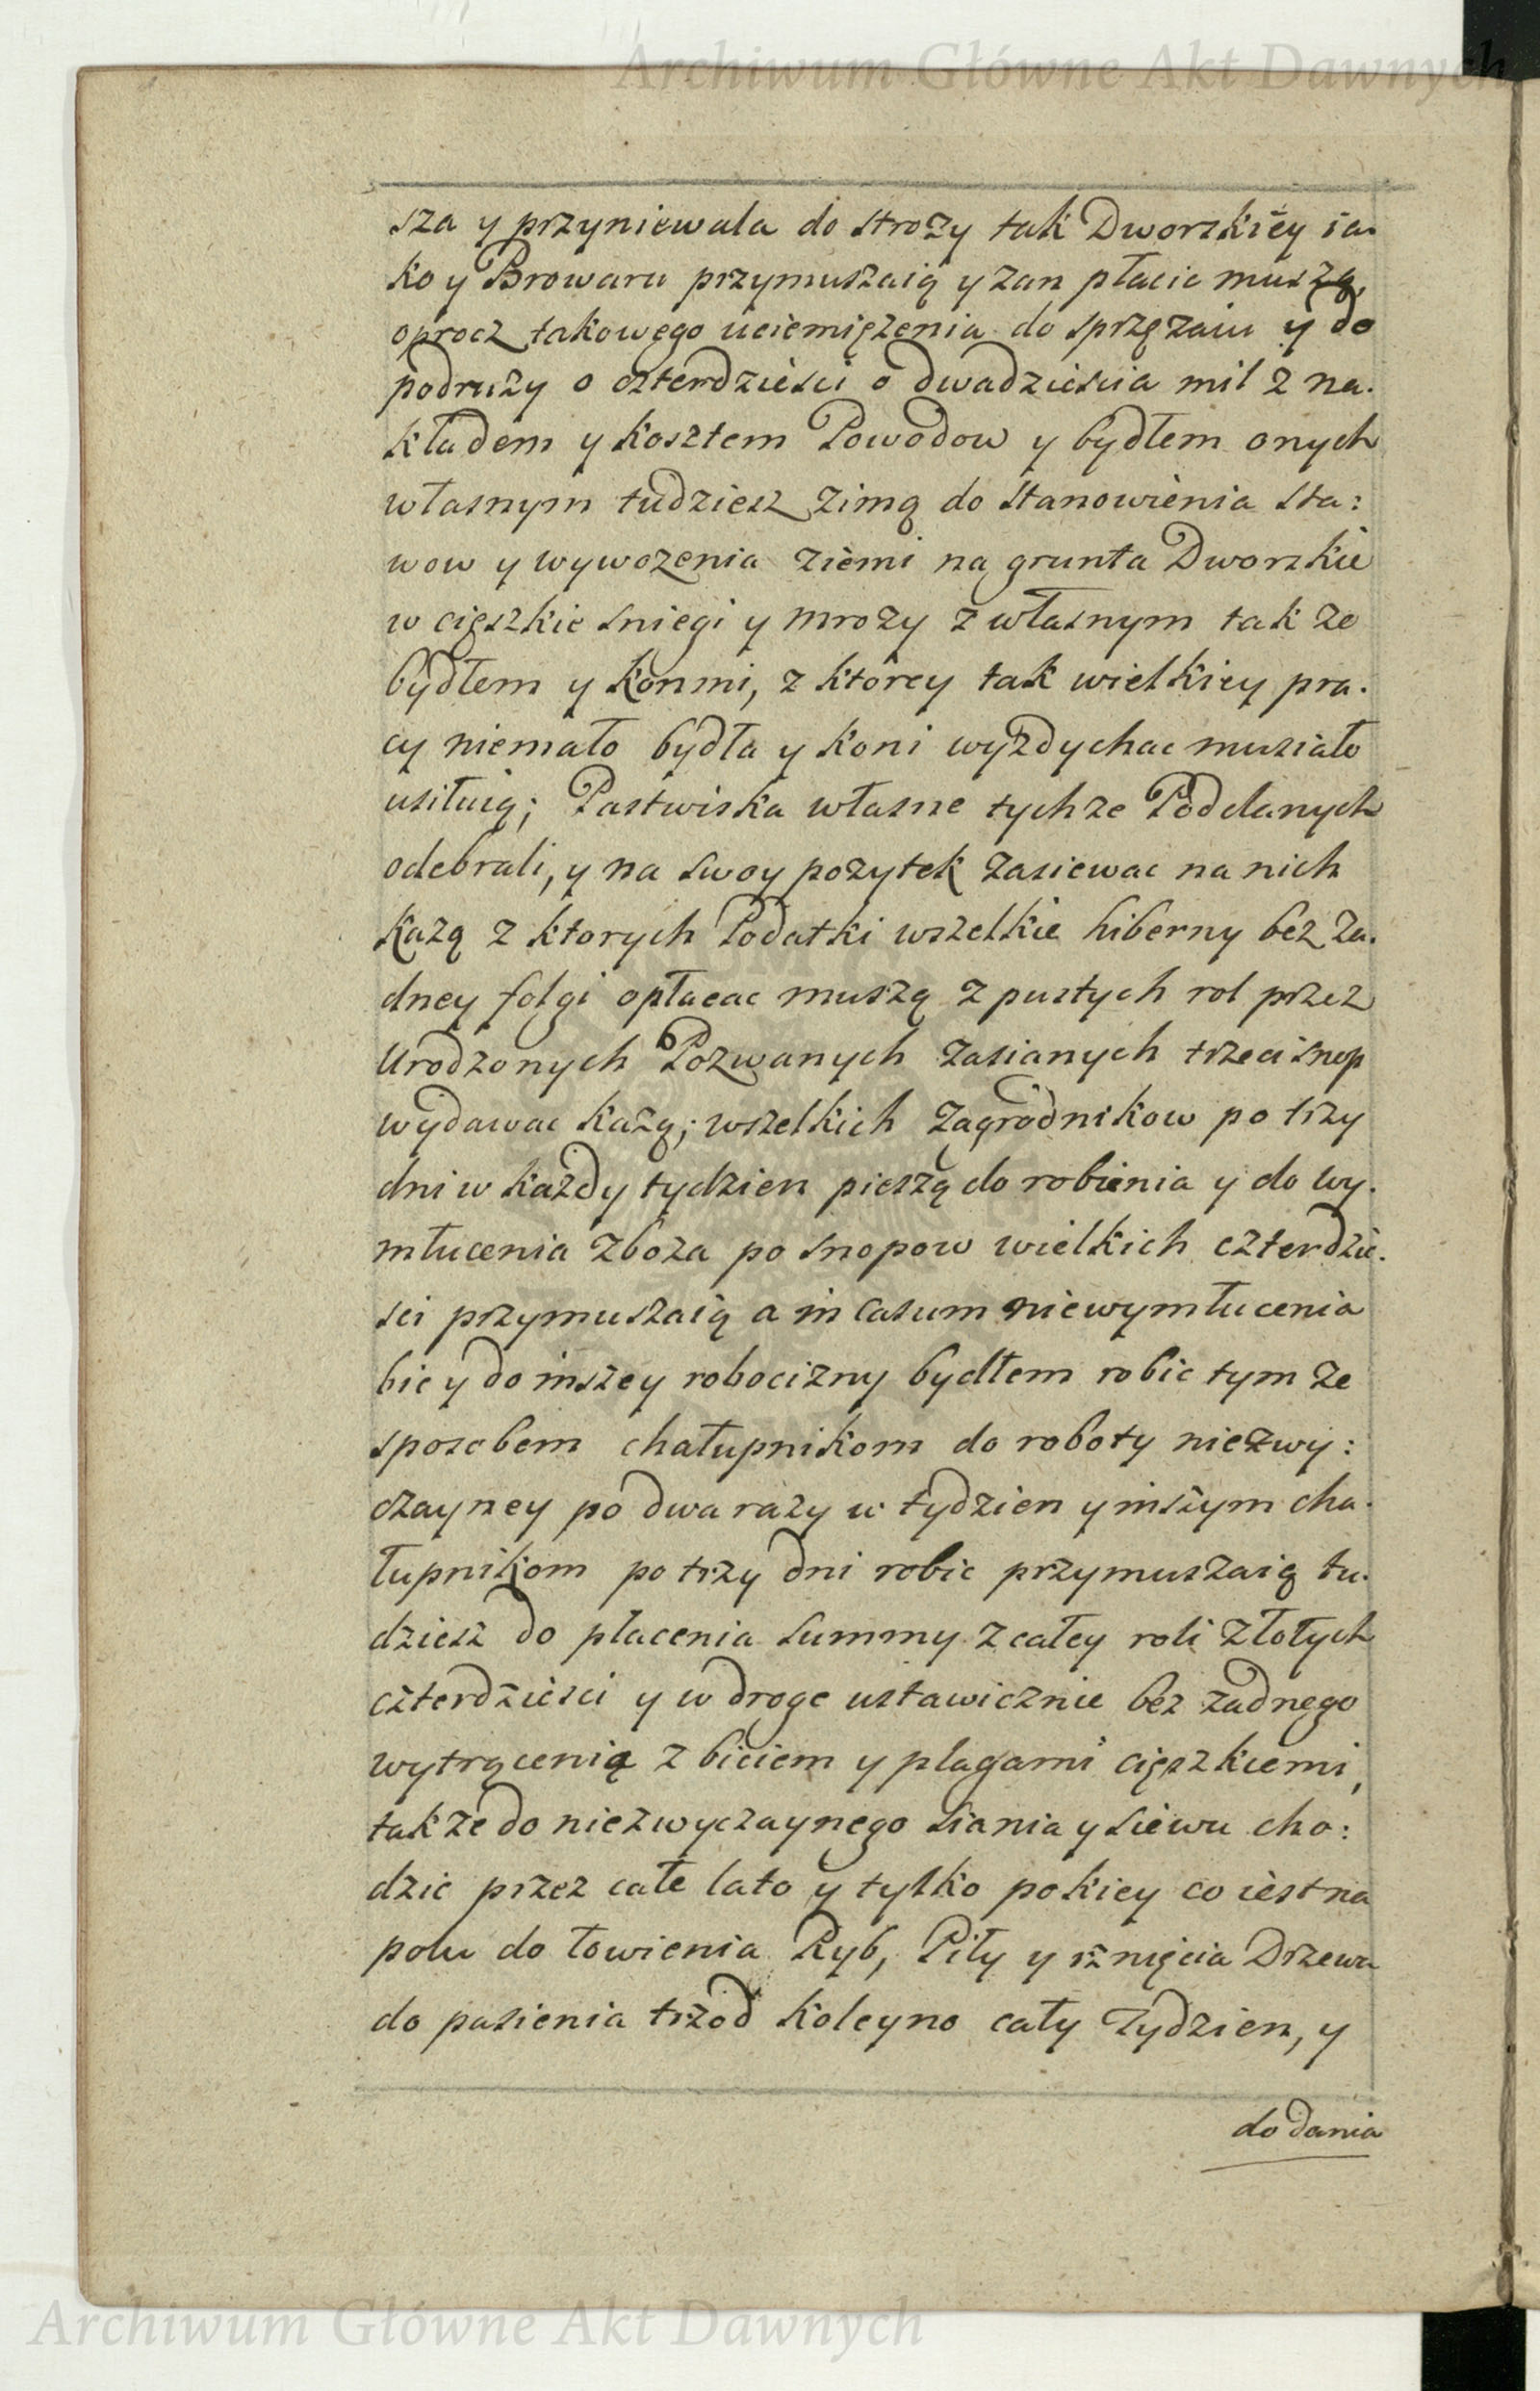 Archiwum Główne Akt Dawnych
sza y przyniewala do strozy tak Dworskiey ia.
ko y Browaru przymuszaią y zan płacic muszą,
oprocz takowego uciemięzenia do sprzęzaiu y do
podruzy o czterdziesci o dwadziescia mil z na.
kładem y kosztem Powodow y bydłem onych
własnym tudziesz zimą do stanowienia sta:
wow y wywozenia ziemi na grunta Dworskie
w cięszkie sniegi y mrozy z własnym tak ze
bydłem y konmi, z ktorey tak wielkiey pra.
cy niemało bydła y koni wyzdychac musiało
usiłuią; Pastwiska własne tychze Poddanych
odebrali, y na swoy pozytek zasiewac na nich
kazą z ktorych Podatki wszelkie hiberny bez za.
dney folgi opłacac muszą z pustych rol przez
Urodzonych Pozwanych zasianych trzeci snop
wydawac kazą; wszelkich zagrodnikow po trzy
dni w kazdy tydzien pieszą do robienia y do wy.
młucenia zboza po snopow wielkich czterdzie.
sci przymuszaią a in casum niewymłucenia
bic y do inszey robocizny bydłem robic tym ze
sposobem chałupnikom do roboty niezwy:
czayney po dwa razy w tydzien y inszym cha.
łupnikom po trzy dni robic przymuszaią tu.
dziesz do placenia summy z całey roli złotych
czterdziesci y w droge ustawicznie bez zadnego
wytrącenia z biciem y plagami cięszkiemi,
takze do niezwyczaynego siania y siewu cho:
dzic przez całe lato y tylko pokiey co iest na
polu do łowienia Ryb, Piły y rznięcia Drzewa
do pasienia trzod koleyno cały Tydzien, y
do dania
Archiwum Główne Akt Dawnych